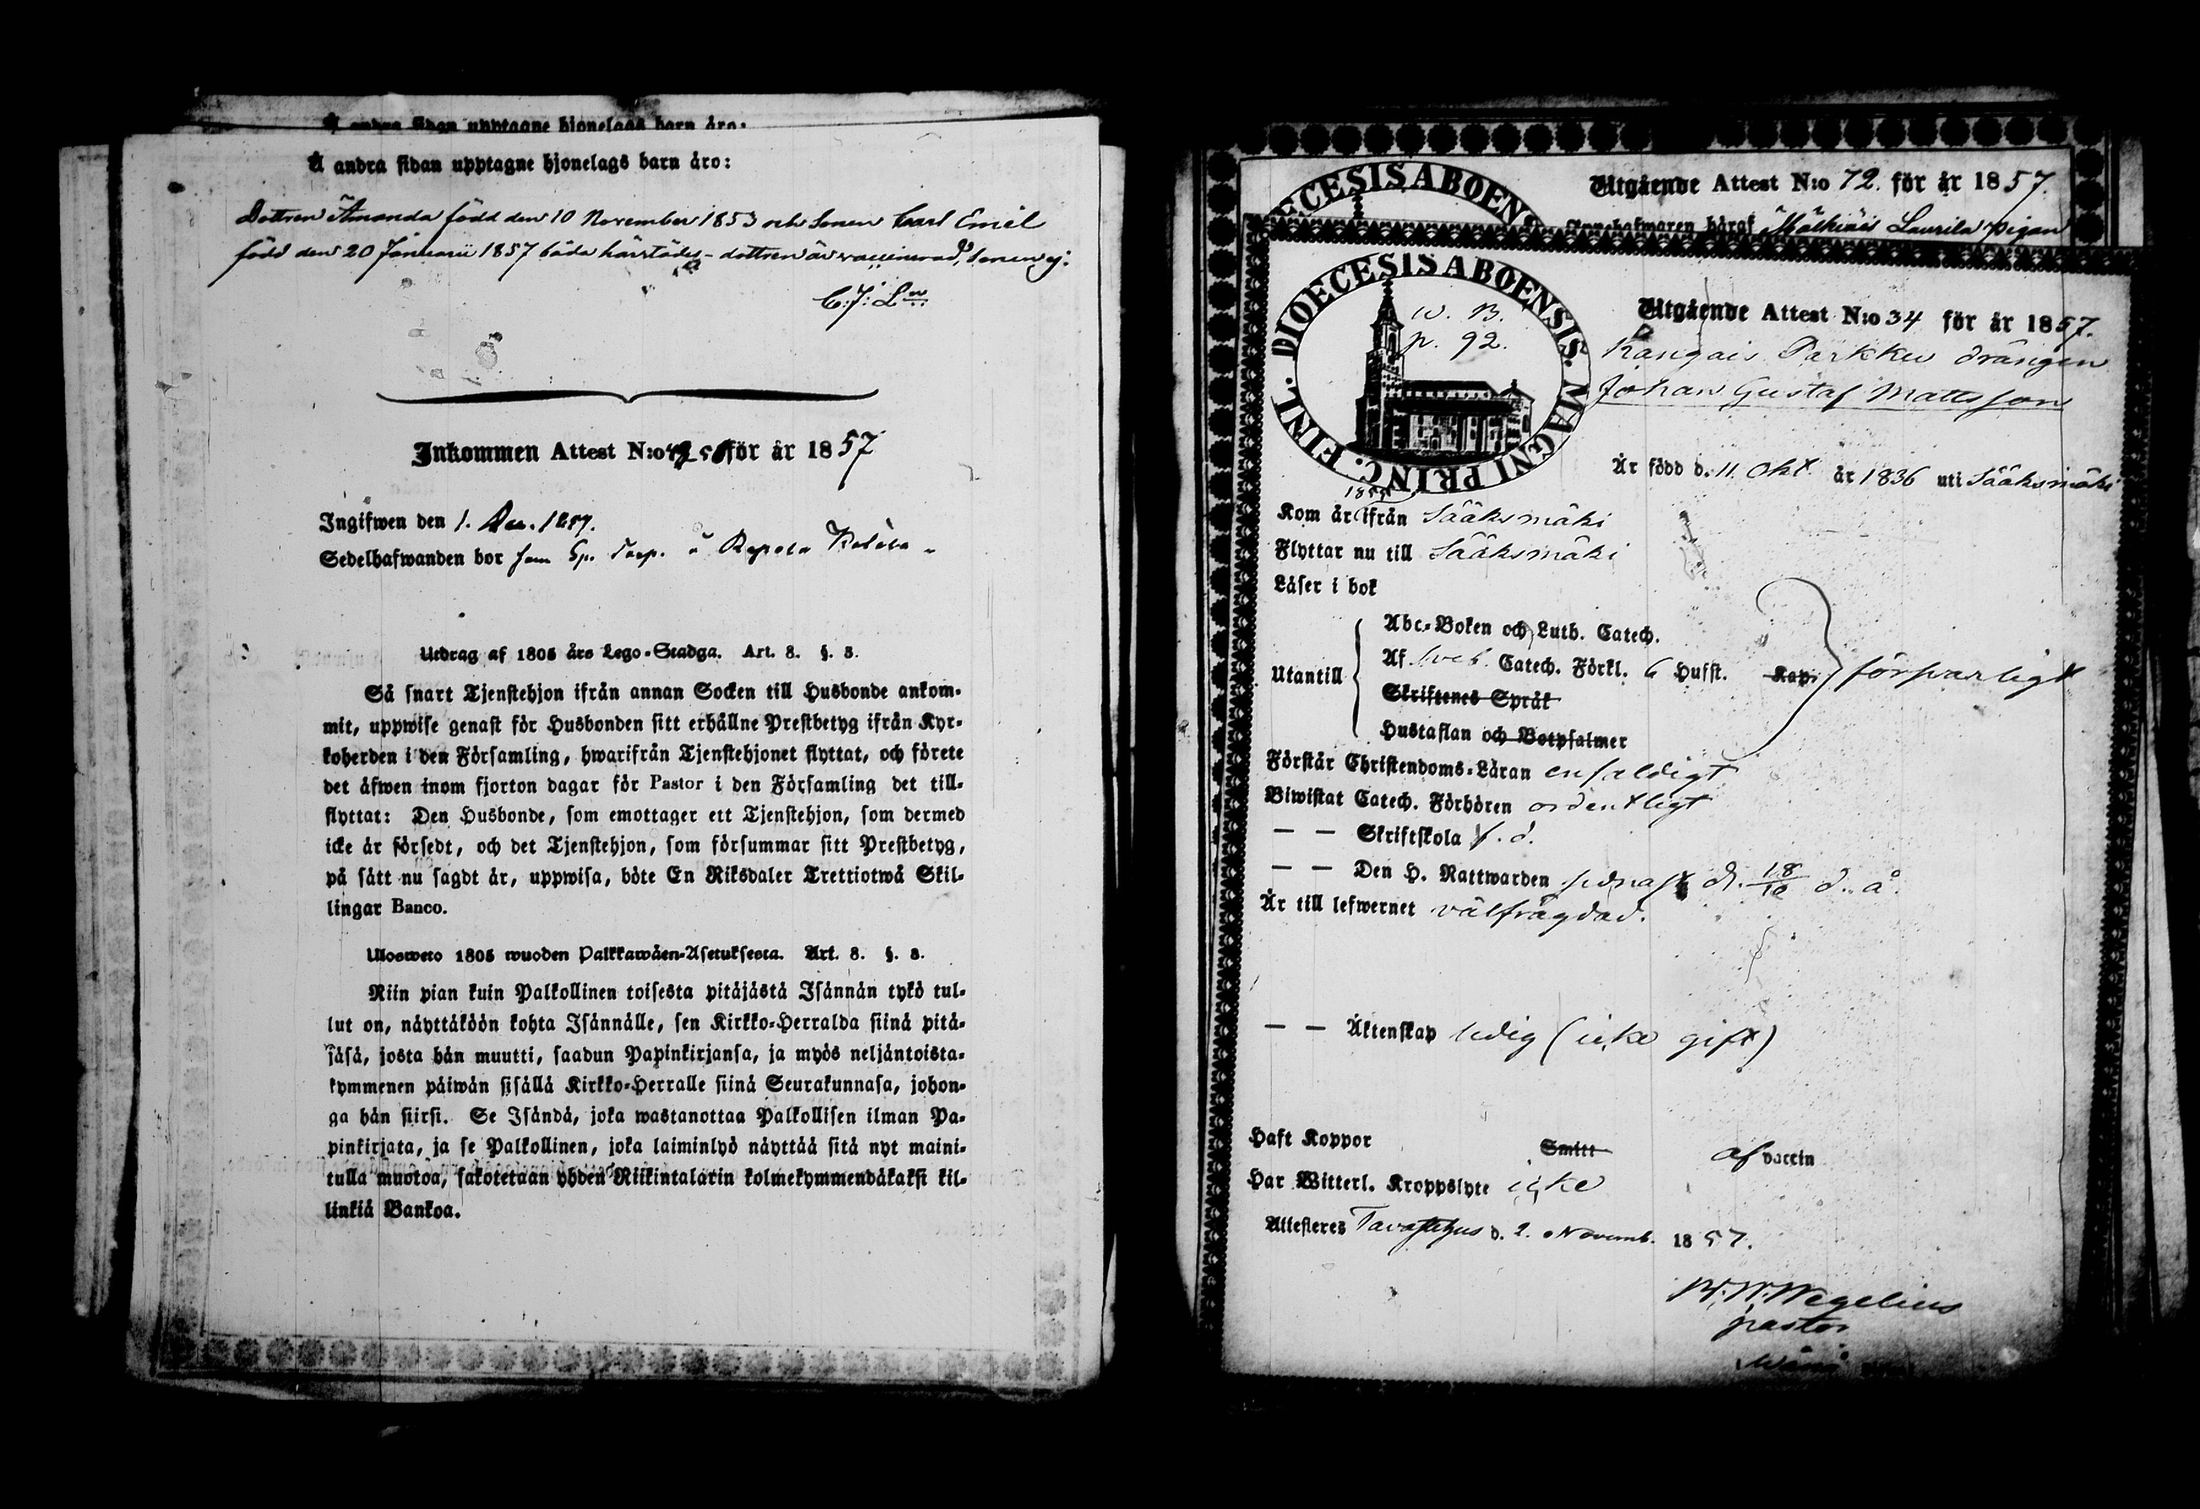 Å andra sidan upptagne hjonelags barn äro:
Å andra sidan upptagne hjonelags barn äro:
Dottren Amanda född den 10 November 1853 och Sonen Carl Emil
född den 20 Januarii 1857 båda härstädes - dottren är vaccinerad, sonen ej.
C:J: Ln
Inkommen Attest N:o för år 1857
Ingifwen den 1. Dec. 1857.
Sedelhafwanden bor som Sp. Torp. å Rapola
Utdrag af 1805 års Lego-Stadga. Art. 8. §. 3.
Så snart Tjenstehjon ifrån annan Socken till Husbonde ankom-
mit, uppwise genast för Husbonden sitt erhållne Prestbetyg ifrån Kyr-
koherden i den Församling, hwarifrån Tjenstehjonet flyttat, och förete
det äfwen inom fjorton dagar för Pastor i den Församling det till-
flyttat: Den Husbonde, som emottager ett Tjenstehjon, som dermed
icke är försedt, och det Tjenstehjon, som försummar sitt Prestbetyg,
på sätt nu sagdt är, uppwisa, böte En Riksdaler Trettiotwå Skil-
lingar Banco.
Ulosweto 1805 wuoden Palkkawäen-Asetuksesta. Art. 8. §. 3.
Niin pian kuin Palkollinen toisesta pitäjästä Isännän tykö tul-
lut on, näyttäköön kohta Isännälle, sen Kirkko-Herralda siinä pitä-
jäsä, josta hän muutti, saadun Papinkirjansa, ja myös neljäntoista-
kymmenen päiwän sisällä Kirkko-Herralle siinä Seurakunnasa, johon-
ga hän siirsi. Se Isändä, joka wastanottaa Palkollisen ilman Pa-
pinkirjata, ja se Palkollinen, joka laiminlyö näyttää sitä nyt maini-
tulla muotoa, sakotetaan yhden Riikintalarin kolmekymmendäkaksi kil-
linkiä Bankoa.
DIOECESIS ABOENSIS
Utgående Attest N:o 72. för år 1857.
Innehafwaren häraf Mälkiäis Laurila pigan
DIOECESIS ABOENSIS. MAGNI PRINC. FINL.
w. B.
p. 92.
Utgående Attest N:o 34 för år 1857.
Kangais Parkku drängen
Johan Gustaf Mattsson
Är född d. 11. Okt. år 1836 uti Sääksmäki
1855
Kom år ifrån Sääksmäki
Flyttar nu till Sääksmäki
Läser i bok
Abc-Boken och Luth. Catech.
Utantill Af Sveb. Catech. Förkl. 6 Hufst. Kap. försvarligt
Skriftenes Språk
Hustaflan och Botpsalmer
Förstår Christendoms-Läran enfaldigt
Biwistat Catech. Förhören ordentligt
— — Skriftskola f. d.
— — Den H. Nattwarden senast d. 18/10 d. å.
Är till lefwernet välfrägdad.
— — Äktenskap ledig (icke gift)
Haft Koppor Smitt af vaccin
Har Witterl. Kroppslyte icke
Attesteres Tavastehus d. 2. Novemb. 1857.
Wegelius
pastor